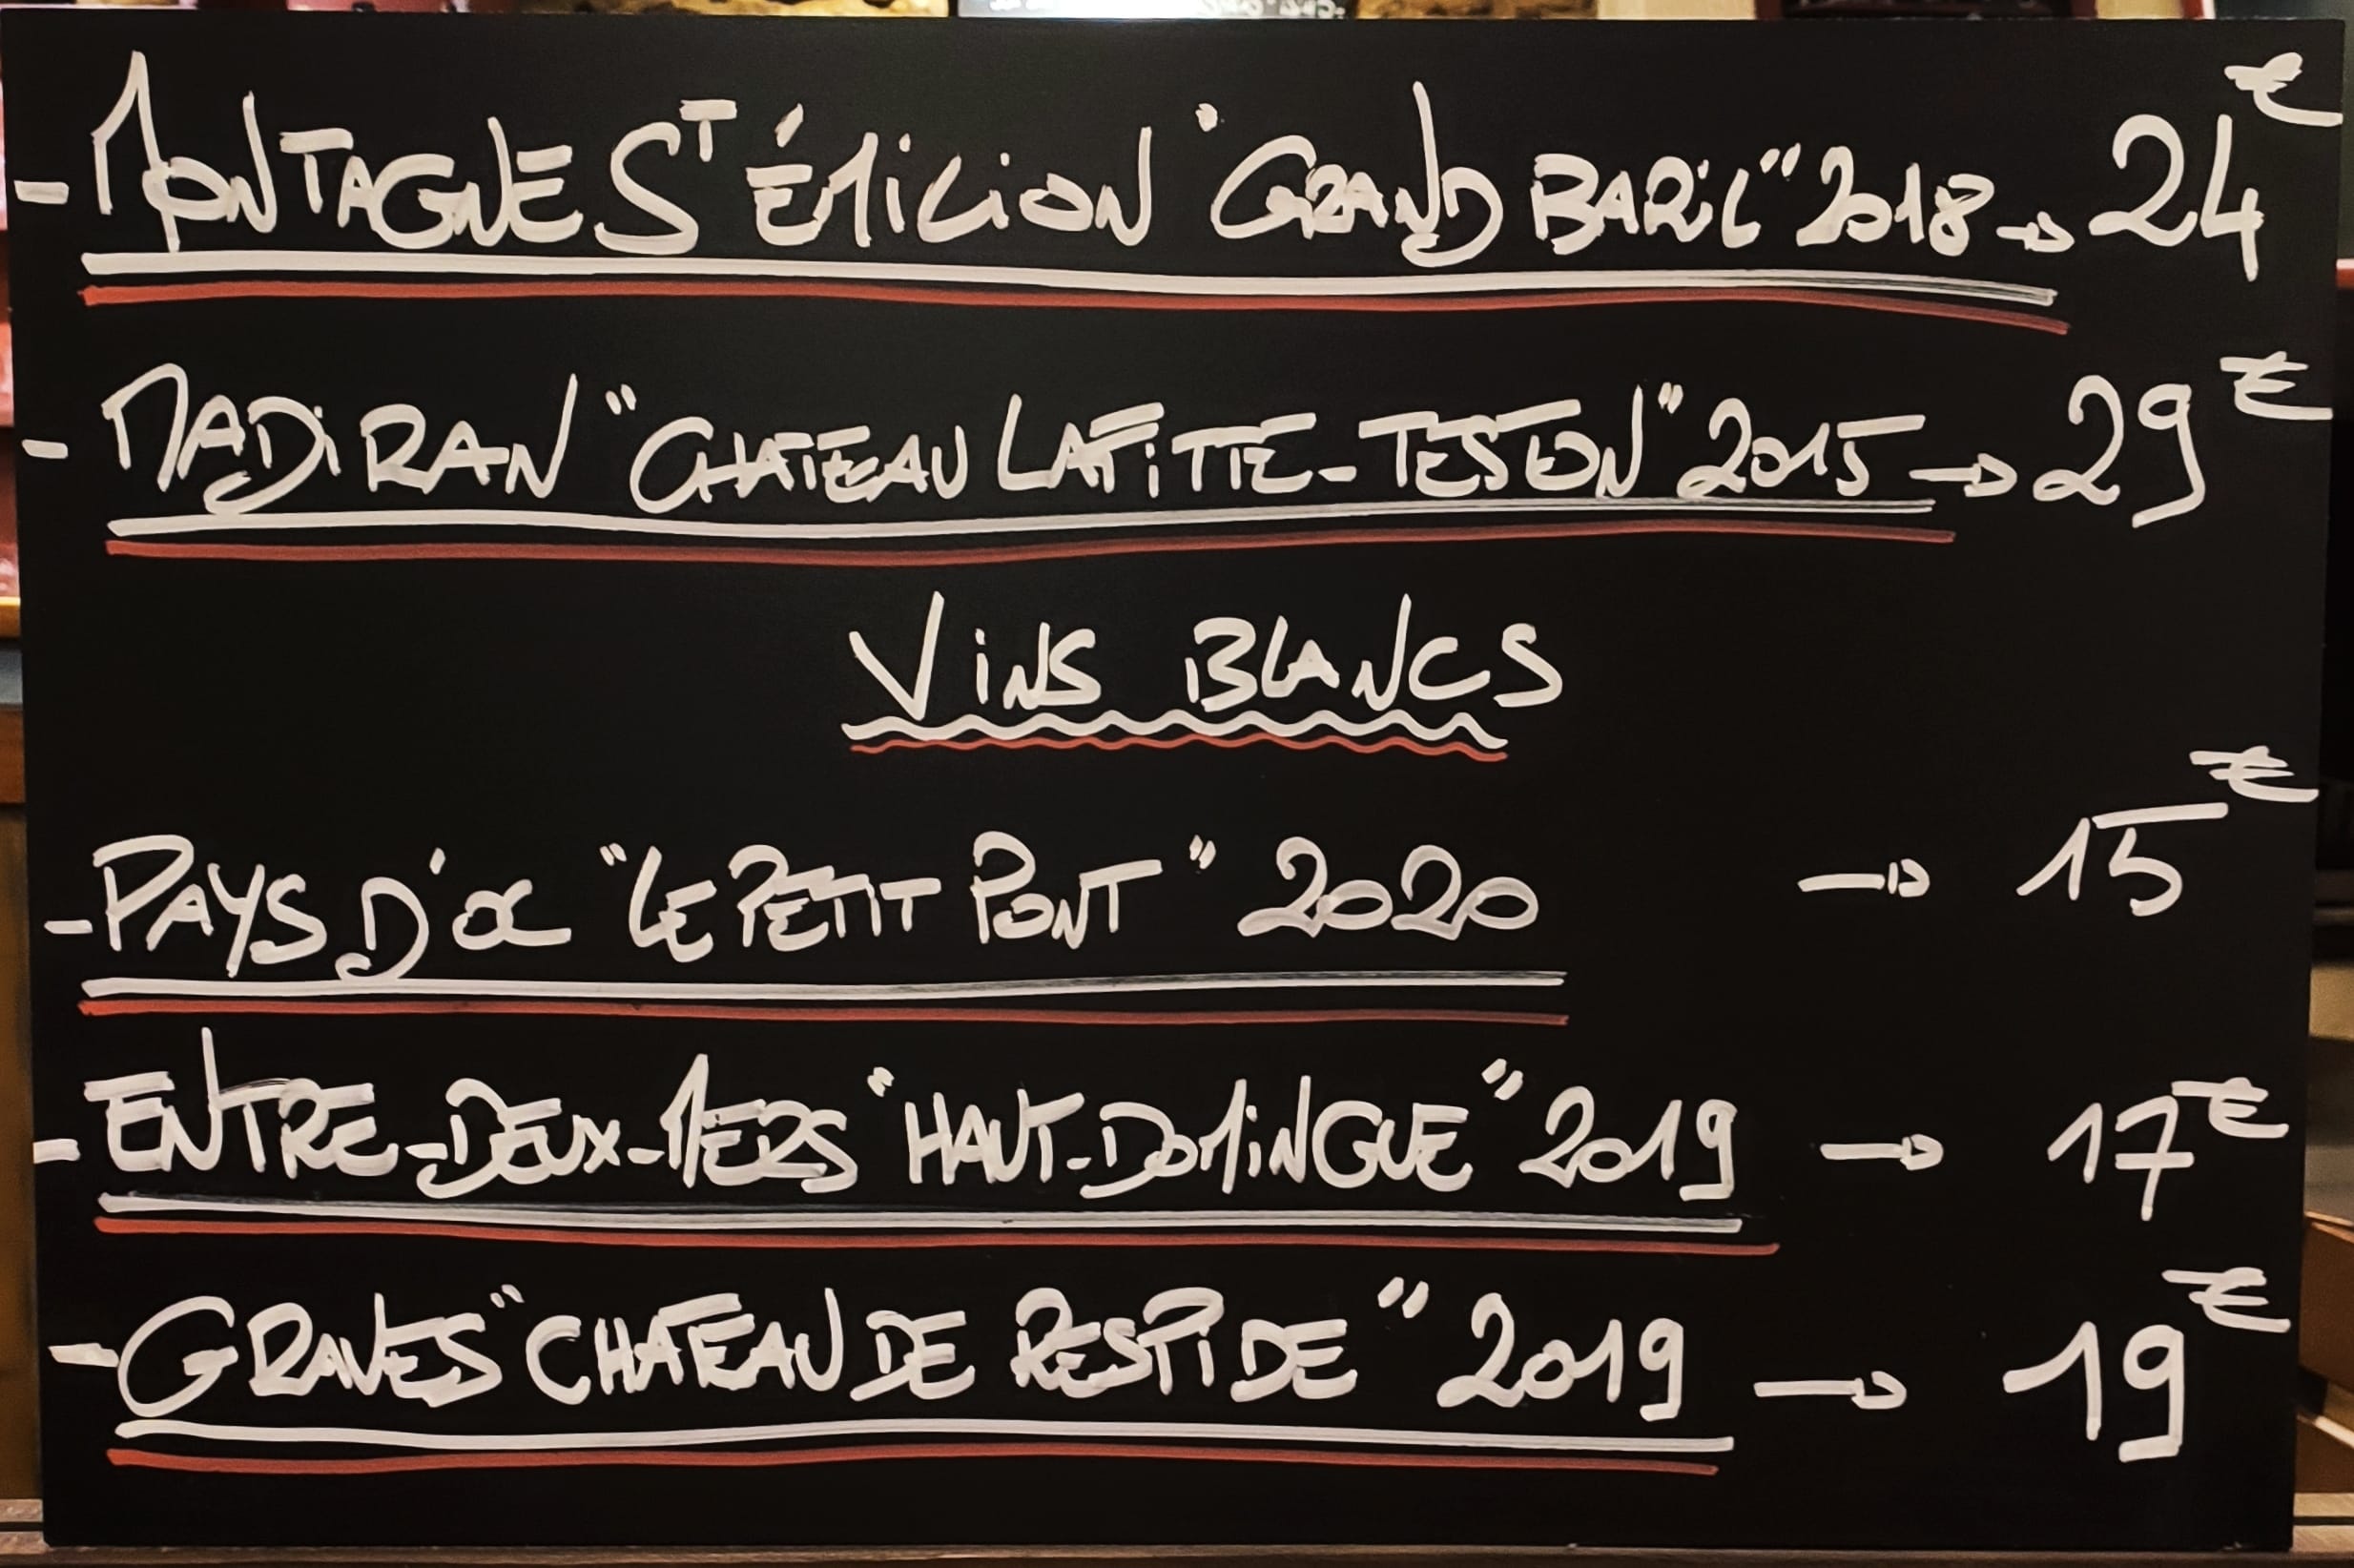 - MONTAGNE Sᵀ ÉMILION "GRAND BARiL" 2018 → 24€
- MADiRAN "CHATEAU LAFiTTE-TESTON" 2015 → 29€
ViNS BLANCS
- PAYS D'OC "LE PETIT PONT" 2020 → 15€
- ENTRE-DEUX-MERS "HAUT-DOMiNGUE" 2019 → 17€
- GRAVES "CHATEAU DE RESPiDE" 2019 → 19€